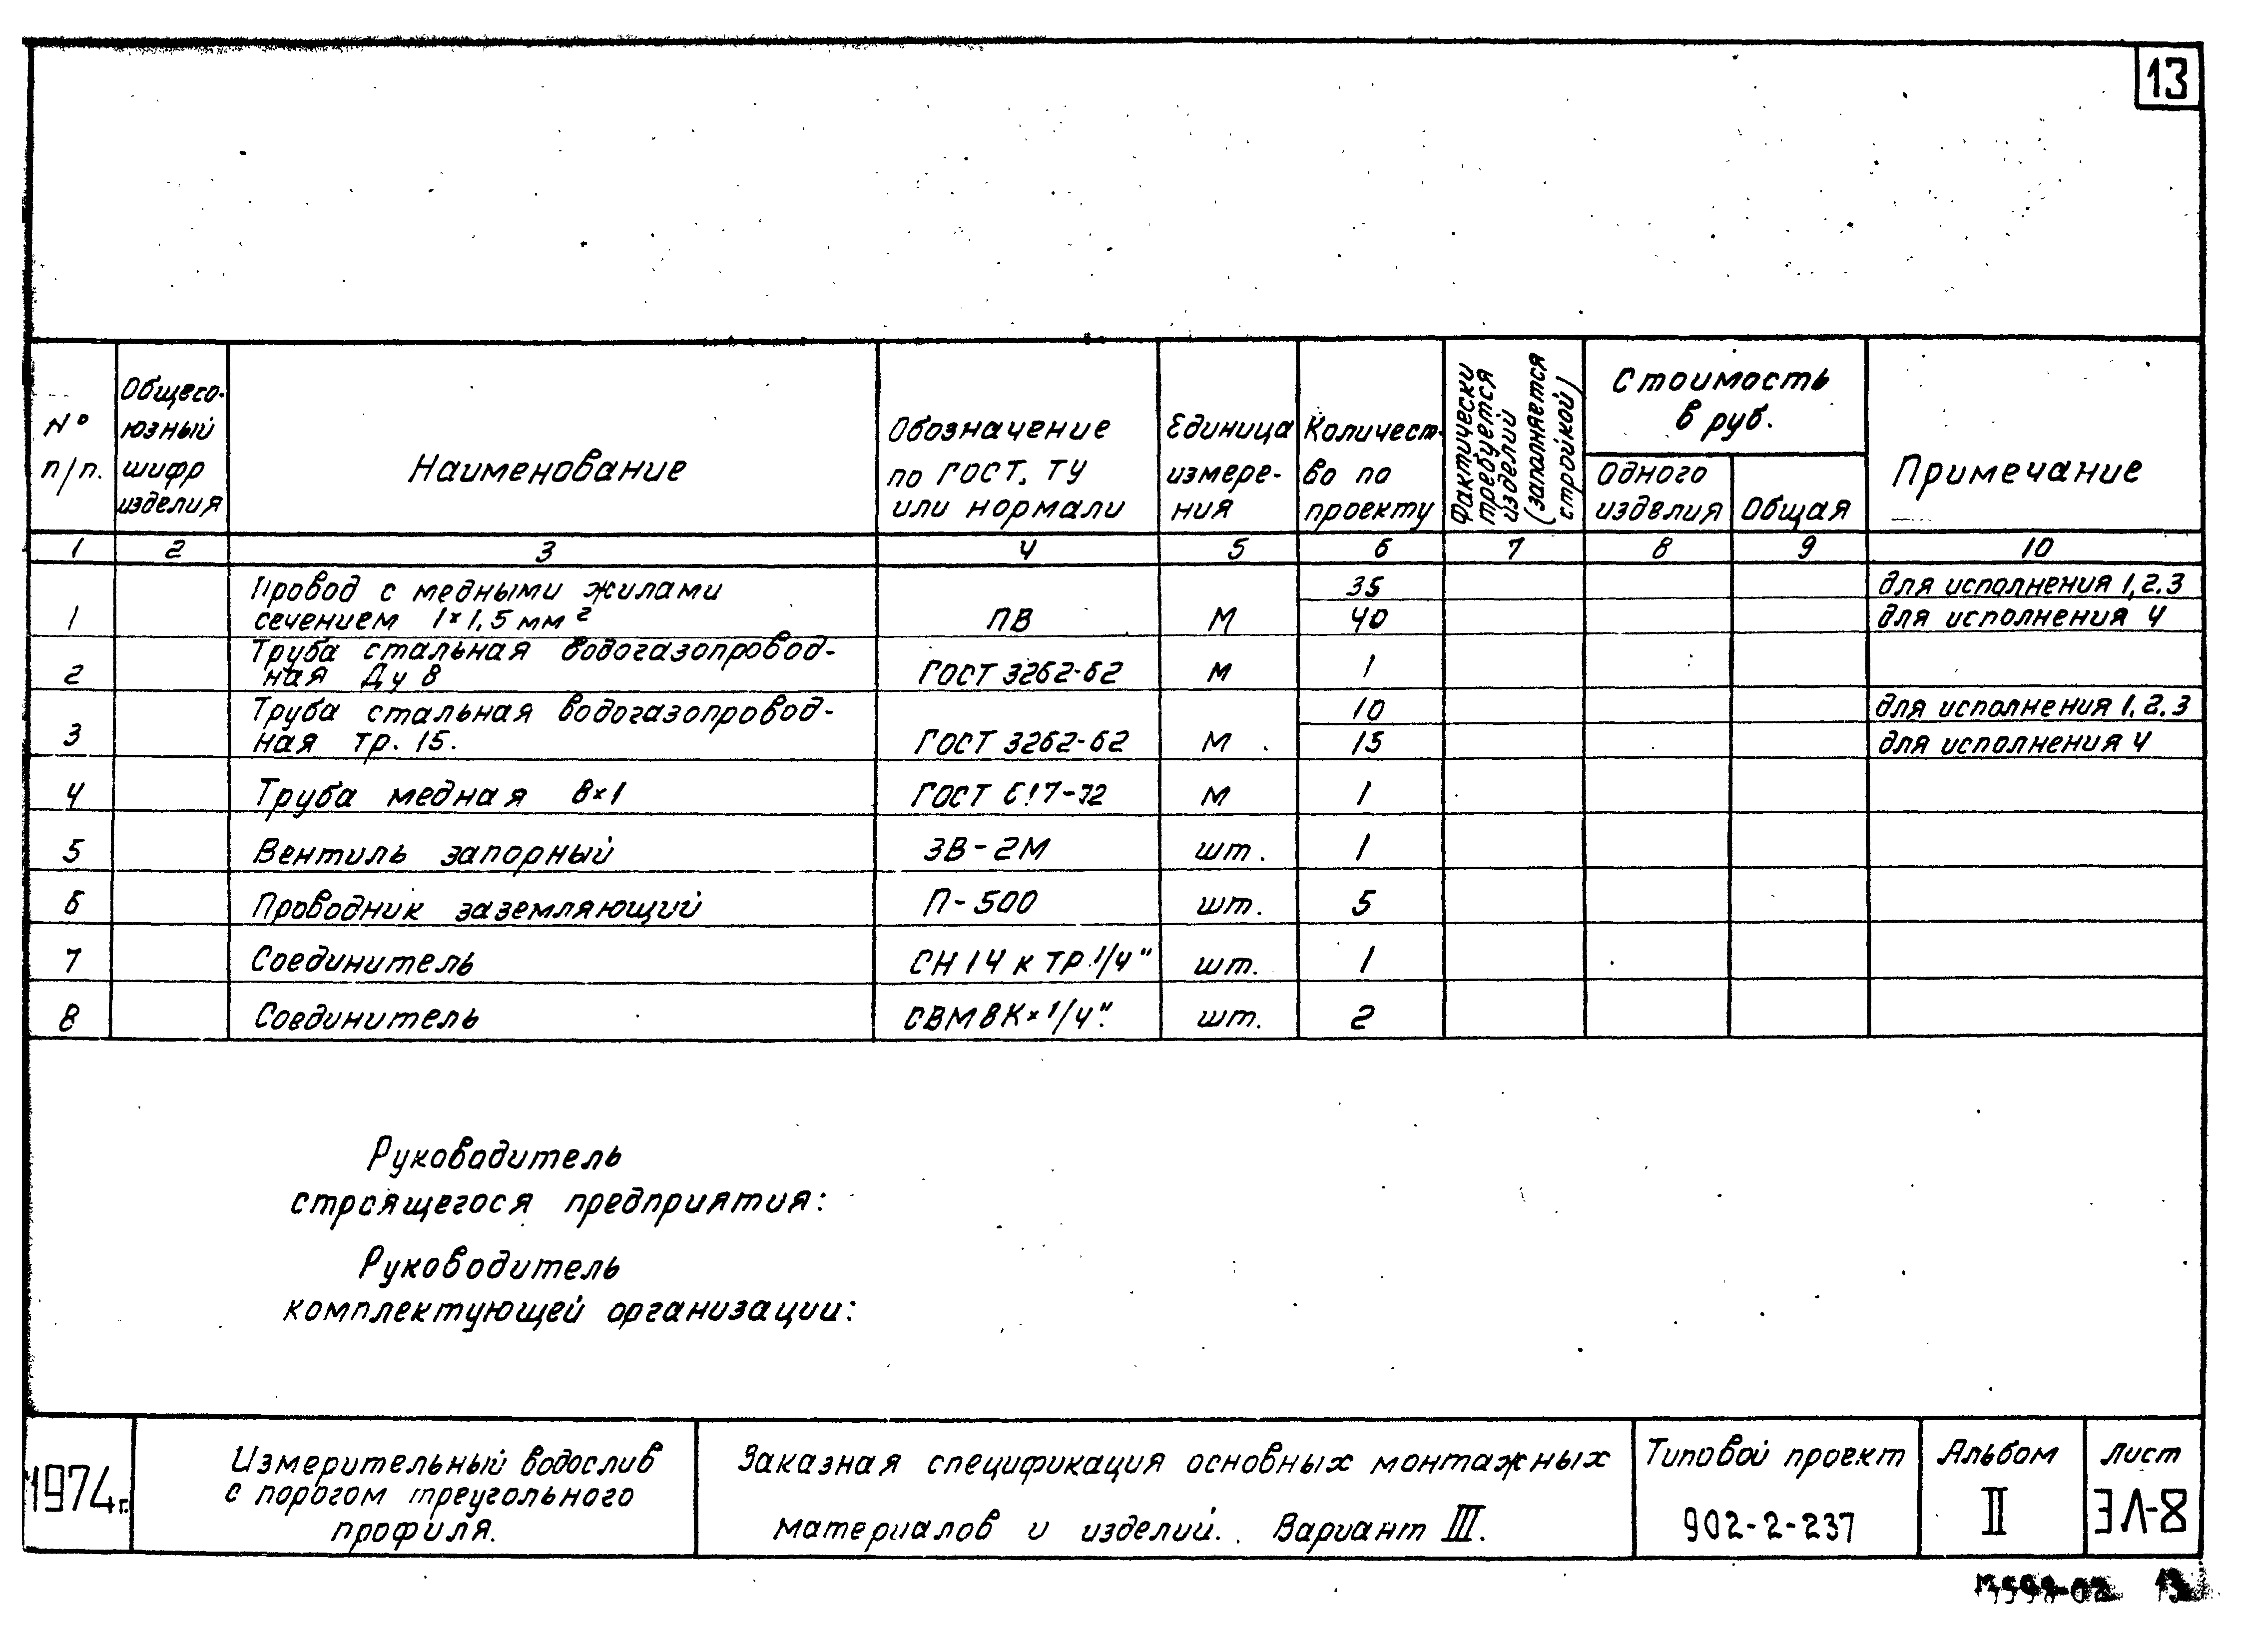 13
№ п/п.
Общесо-
юзный
шифр
изделия
Наименование
Обозначение
по ГОСТ, ТУ
или нормали
Единица
измере-
ния
Количест-
во по
проекту
Фактически
требуется
изделий
(заполняется
стройкой)
Стоимость
в руб.
Одного
изделия
Общая
Примечание
1 2 3 4 5 6 7 8 9 10
1 Провод с медными жилами сечением 1×1,5 мм² ПВ М 35 для исполнения 1,2.3
40 для исполнения 4
2 Труба стальная водогазопровод-
ная Ду 8 ГОСТ 3262-62 М 1
3 Труба стальная водогазопровод-
ная тр. 15. ГОСТ 3262-62 М 10 для исполнения 1.2.3
15 для исполнения 4
4 Труба медная 8×1 ГОСТ 617-72 М 1
5 Вентиль запорный ЗВ-2М шт. 1
6 Проводник заземляющий П-500 шт. 5
7 Соединитель СН 14 к тр. 1/4" шт. 1
8 Соединитель СВМ 8К×1/4". шт. 2
Руководитель
строящегося предприятия:
Руководитель
комплектующей организации:
1974г.
Измерительный водослив
с порогом треугольного
профиля.
Заказная спецификация основных монтажных
материалов и изделий. Вариант III.
Типовой проект
902-2-237
Альбом
II
Лист
ЭЛ-8